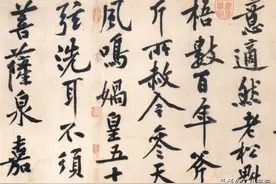 意適然老松魁
梧數百年斧
斤所赦今參天
風鳴媧皇五十
弦洗耳不須
菩薩泉嘉